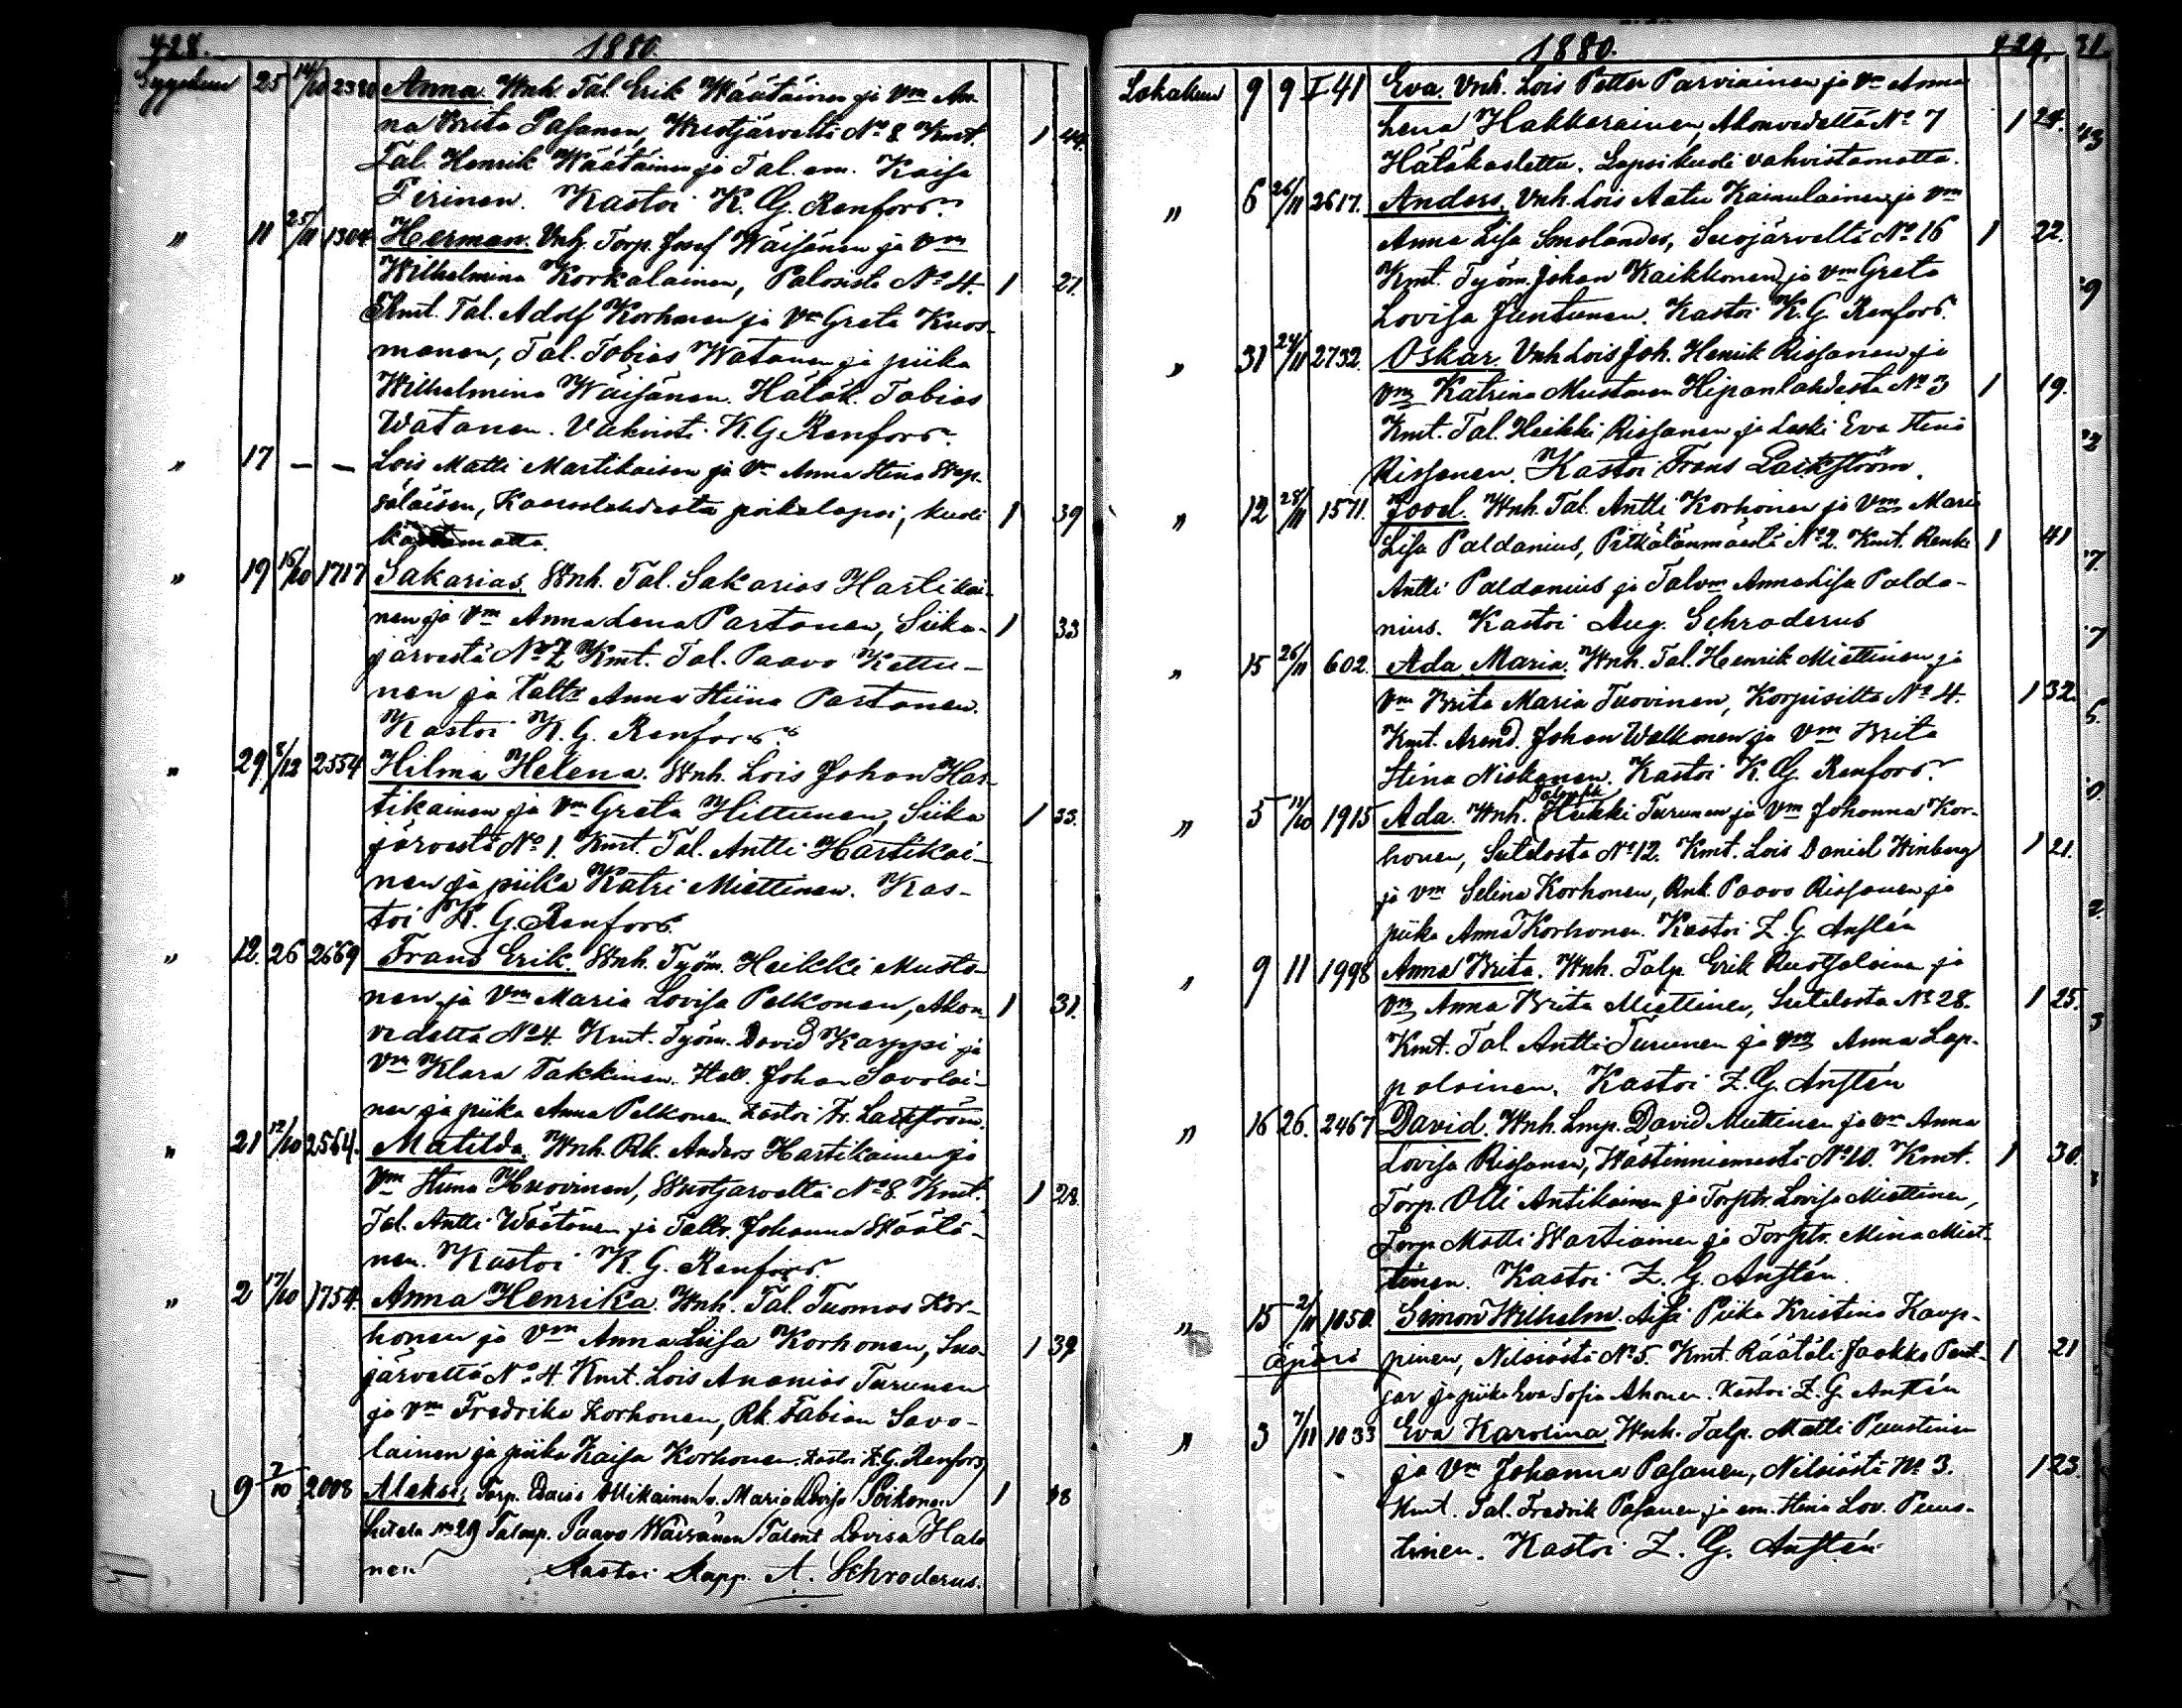 428.
1880.
Syyskuu 25 14/10 2380 Anna. Wnh. Tal. Erik Wäätäinen ja Vm An-
na Brita Pasanen, Wuotjärveltä No 8. Kmt. 1 44.
Tal. Henrik Wäätäinen ja Tal. em. Kaisa
Kastoi K. G. Renfors.
" 11 25/11 1304 Herman. Vnh. Torp. Josef Wäisänen ja Vm
Wilhelmina Korkalainen, Palosista No 4. 1 27.
Kmt. Tal. Adolf Korhonen ja Vm Greta Kuos-
manen, Tal. Tobias Watanen ja piika
Wilhelmina Wäisänen. Hätäk. Tobias
Watanen. Vahvisti K. G. Renfors.
" 17 — — Lois Matti Martikaisen ja Vm Anna Stina Wep-
säläisen, Kaarslahdesta poikalapsi, kuoli 1 39
kastamatta.
" 19 15/10 1717 Sakarias. Wnh. Tal. Sakarias Hartikai-
nen ja Vm Anna Lena Partanen, Siika- 1 33
järvestä No 7 Kmt. Tal. Paavo Kettu-
nen ja Taltr Anna Stiina Partanen.
Kastoi K. G. Renfors.
" 29 8/12 2554 Hilma Helena. Wnh. Lois Johan Har-
tikainen ja Vm Greta Hiltunen, Siika 1 33.
järvestä No 1. Kmt. Tal. Antti Hartikai-
nen ja piika Katri Miettinen. Kas-
toi K. G. Renfors.
" 12. 26 2669 Frans Erik. Wnh. Työm. Heikki Musto-
nen ja Vm Maria Lovisa Pelkonen, Akon- 1 31.
vedeltä No 4 Kmt. Työm. David Karppi ja
Vm Klara Takkinen. Itall. Johan Savolai-
nen ja piika Anna Pelkonen. Kastoi Fr. Lackström.
" 21 12/10 2564. Matilda. Wnh. Rk. Anders Hartikainen ja
Vm Stina Huovinen, Wuotjarveltä No 8. Kmt. 1 28.
Tal. Antti Wäätänen ja Taltr. Johanna Wäätä-
nen. Kastoi K. G. Renfors.
" 2 17/10 1754 Anna Henrika. Wnh. Tal. Tuomas Kor-
honen ja Vm Anna Liisa Korhonen, Suo- 1 39
järveltä No 4. Kmt. Lois Ananias Turunen
ja Vm Fredrika Korhonen, Rk. Fabian Savo-
lainen ja piika Kaisa Korhonen. Kastoi K. G. Renfors
9 7/10 2008 Aleksi, Torp. Ollikainen v. Maria Lovisa Poikonen 1 38
Sutela No 29 Talonp. Paavo Wäisänen Talont Lovisa Halo
nen Kastoi Kapp. A. Schroderus.
1880.
429.
Lokakuu 9 9 I 41 Eva. Vnh. Lois Petter Parviainen ja Vm Anna
Lena Hakkarainen, Akonvedeltä No 7 1 24.
Hätäkastettu. Lapsi kuoli vahvistamatta.
" 6 26/11 2617. Anders. Vnh. Lois Aatu Kainulainen ja Vm
Anna Lisa Smolander, Suojärveltä No 16 1 22.
Kmt. Työm. Johan Kaikkonen ja Vm Greta
Lovisa Juntunen. Kastoi K. G. Renfors.
" 31 24/11 2732. Oskar. Vnh Lois Joh. Henrik Rissanen ja
Vm Katrina Mustonen Hipanlahdesta No 3 1 19.
Kmt. Tal. Heikki Rissanen ja Leski Eva Stina
Rissanen. Kastoi Frans Lackström.
" 12 28/11 1571. Joool. Wnh. Tal. Antti Korhonen ja Vm Maria
Lisa Paldanius, Pitkälänmäestä No 2. Kmt. Renki 1 41
Antti Paldanius ja Talvm Anna Lisa Palda-
nius. Kastoi Aug. Schroderus
" 15 26/11 602. Ada Maria. Wnh. Tal. Henrik Miettinen ja
Vm Brita Maria Tuovinen, Korpisilta No 4. 1 32.
Kmt. Arend. Johan Walkonen ja Vm Brita
Stina Niskanen. Kastoi K. G. Renfors.
" 5 17/10 1915 Ada. Wnh. Heikki Turunen ja Vm Johanna Kor-
honen, Sutelasta No 12. Kmt. Lois Daniel Winberg 1 21.
ja Vm Selina Korhonen, Rnk. Paavo Rissanen ja
piika Anna Korhonen. Kastoi Z. G. Anstén
" 9 11 1998 Anna Brita. Wnh. Talp. Erik Ruotsalainen ja
Vm Anna Brita Miettinen, Sutelasta No 28. 1 25.
Kmt. Tal. Antti Turunen ja Vm Anna Lap-
palainen. Kastoi Z. G. Anstén
" 16 26. 2467 David. Wnh. Lmp. David Miettinen ja Vm Anna
Lovisa Rissanen, Wästinniemestä No 10. Kmt. 1 30.
Torp. Olli Antikainen ja Torptr. Lovisa Miettinen,
Torp. Matti Wartiainen ja Torptr. Mina Miet-
tinen. Kastoi Z. G. Anstén.
" 15 2/11 1050. Simon Wilhelm. Äiti Piika Kristina Kaup-
äpärä pinen, Nilsiästä No 5. Kmt. Räätäli Jaakko Part-
ja piika Eva Sofia Ahonen. Kastoi Z. G. Anstén 1 21
" 3 7/11 1033 Eva Karolina. Wnh. Talp. Matti Puustinen
ja Vm Johanna Pasanen, Nilsiästä No 3. 1 23.
Kmt. Tal. Fredrik Pasanen ja em. Stina Lov. Puus-
tinen. Kastoi Z. G. Anstén